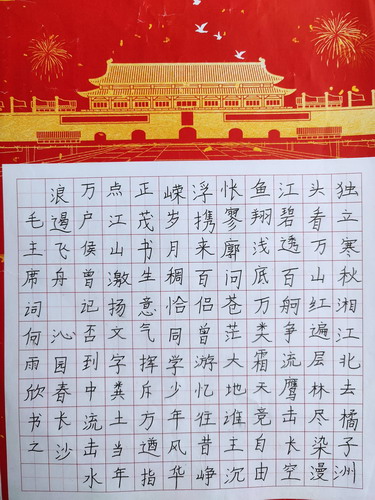 独立寒秋湘江北去橘子洲
头看万山红遍层林尽染漫
江碧透百舸争流鹰击长空
鱼翔浅底万类霜天竞自由
怅廖廓问苍茫大地谁主沉
浮携来百侣曾游忆往昔峥
嵘岁月稠恰同学少年风华
正茂书生意气挥斥方遒指
点江山激扬文字粪土当年
万户侯曾记否到中流击水
浪遏飞舟 沁园春长沙
毛主席词何雨欣书之